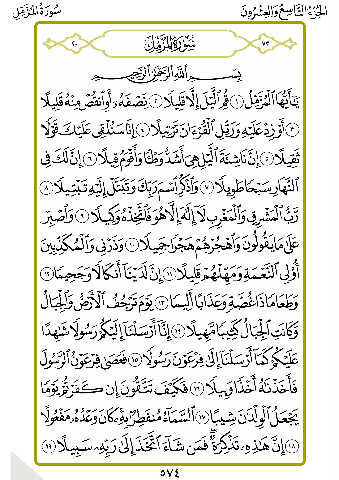 الجزء التاسع والعشرون سورة المزمل
٧٣ سورة المزمل ٢٠
بسم الله الرحمن الرحيم
يَٰٓأَيُّهَا ٱلْمُزَّمِّلُ ١ قُمِ ٱلَّيْلَ إِلَّا قَلِيلًا ٢ نِّصْفَهُۥٓ أَوِ ٱنقُصْ مِنْهُ قَلِيلًا
٣ أَوْ زِدْ عَلَيْهِ وَرَتِّلِ ٱلْقُرْءَانَ تَرْتِيلًا ٤ إِنَّا سَنُلْقِى عَلَيْكَ قَوْلًا
ثَقِيلًا ٥ إِنَّ نَاشِئَةَ ٱلَّيْلِ هِىَ أَشَدُّ وَطْـًٔا وَأَقْوَمُ قِيلًا ٦ إِنَّ لَكَ فِى
ٱلنَّهَارِ سَبْحًا طَوِيلًا ٧ وَٱذْكُرِ ٱسْمَ رَبِّكَ وَتَبَتَّلْ إِلَيْهِ تَبْتِيلًا ٨
رَّبُّ ٱلْمَشْرِقِ وَٱلْمَغْرِبِ لَآ إِلَٰهَ إِلَّا هُوَ فَٱتَّخِذْهُ وَكِيلًا ٩ وَٱصْبِرْ
عَلَىٰ مَا يَقُولُونَ وَٱهْجُرْهُمْ هَجْرًا جَمِيلًا ١٠ وَذَرْنِى وَٱلْمُكَذِّبِينَ
أُو۟لِى ٱلنَّعْمَةِ وَمَهِّلْهُمْ قَلِيلًا ١١ إِنَّ لَدَيْنَآ أَنكَالًا وَجَحِيمًا ١٢
وَطَعَامًا ذَا غُصَّةٍ وَعَذَابًا أَلِيمًا ١٣ يَوْمَ تَرْجُفُ ٱلْأَرْضُ وَٱلْجِبَالُ
وَكَانَتِ ٱلْجِبَالُ كَثِيبًا مَّهِيلًا ١٤ إِنَّآ أَرْسَلْنَآ إِلَيْكُمْ رَسُولًا شَٰهِدًا
عَلَيْكُمْ كَمَآ أَرْسَلْنَآ إِلَىٰ فِرْعَوْنَ رَسُولًا ١٥ فَعَصَىٰ فِرْعَوْنُ ٱلرَّسُولَ
فَأَخَذْنَٰهُ أَخْذًا وَبِيلًا ١٦ فَكَيْفَ تَتَّقُونَ إِن كَفَرْتُمْ يَوْمًا
يَجْعَلُ ٱلْوِلْدَٰنَ شِيبًا ١٧ ٱلسَّمَآءُ مُنفَطِرٌۢ بِهِۦ كَانَ وَعْدُهُۥ مَفْعُولًا
١٨ إِنَّ هَٰذِهِۦ تَذْكِرَةٌ فَمَن شَآءَ ٱتَّخَذَ إِلَىٰ رَبِّهِۦ سَبِيلًا ١٩
٥٧٤